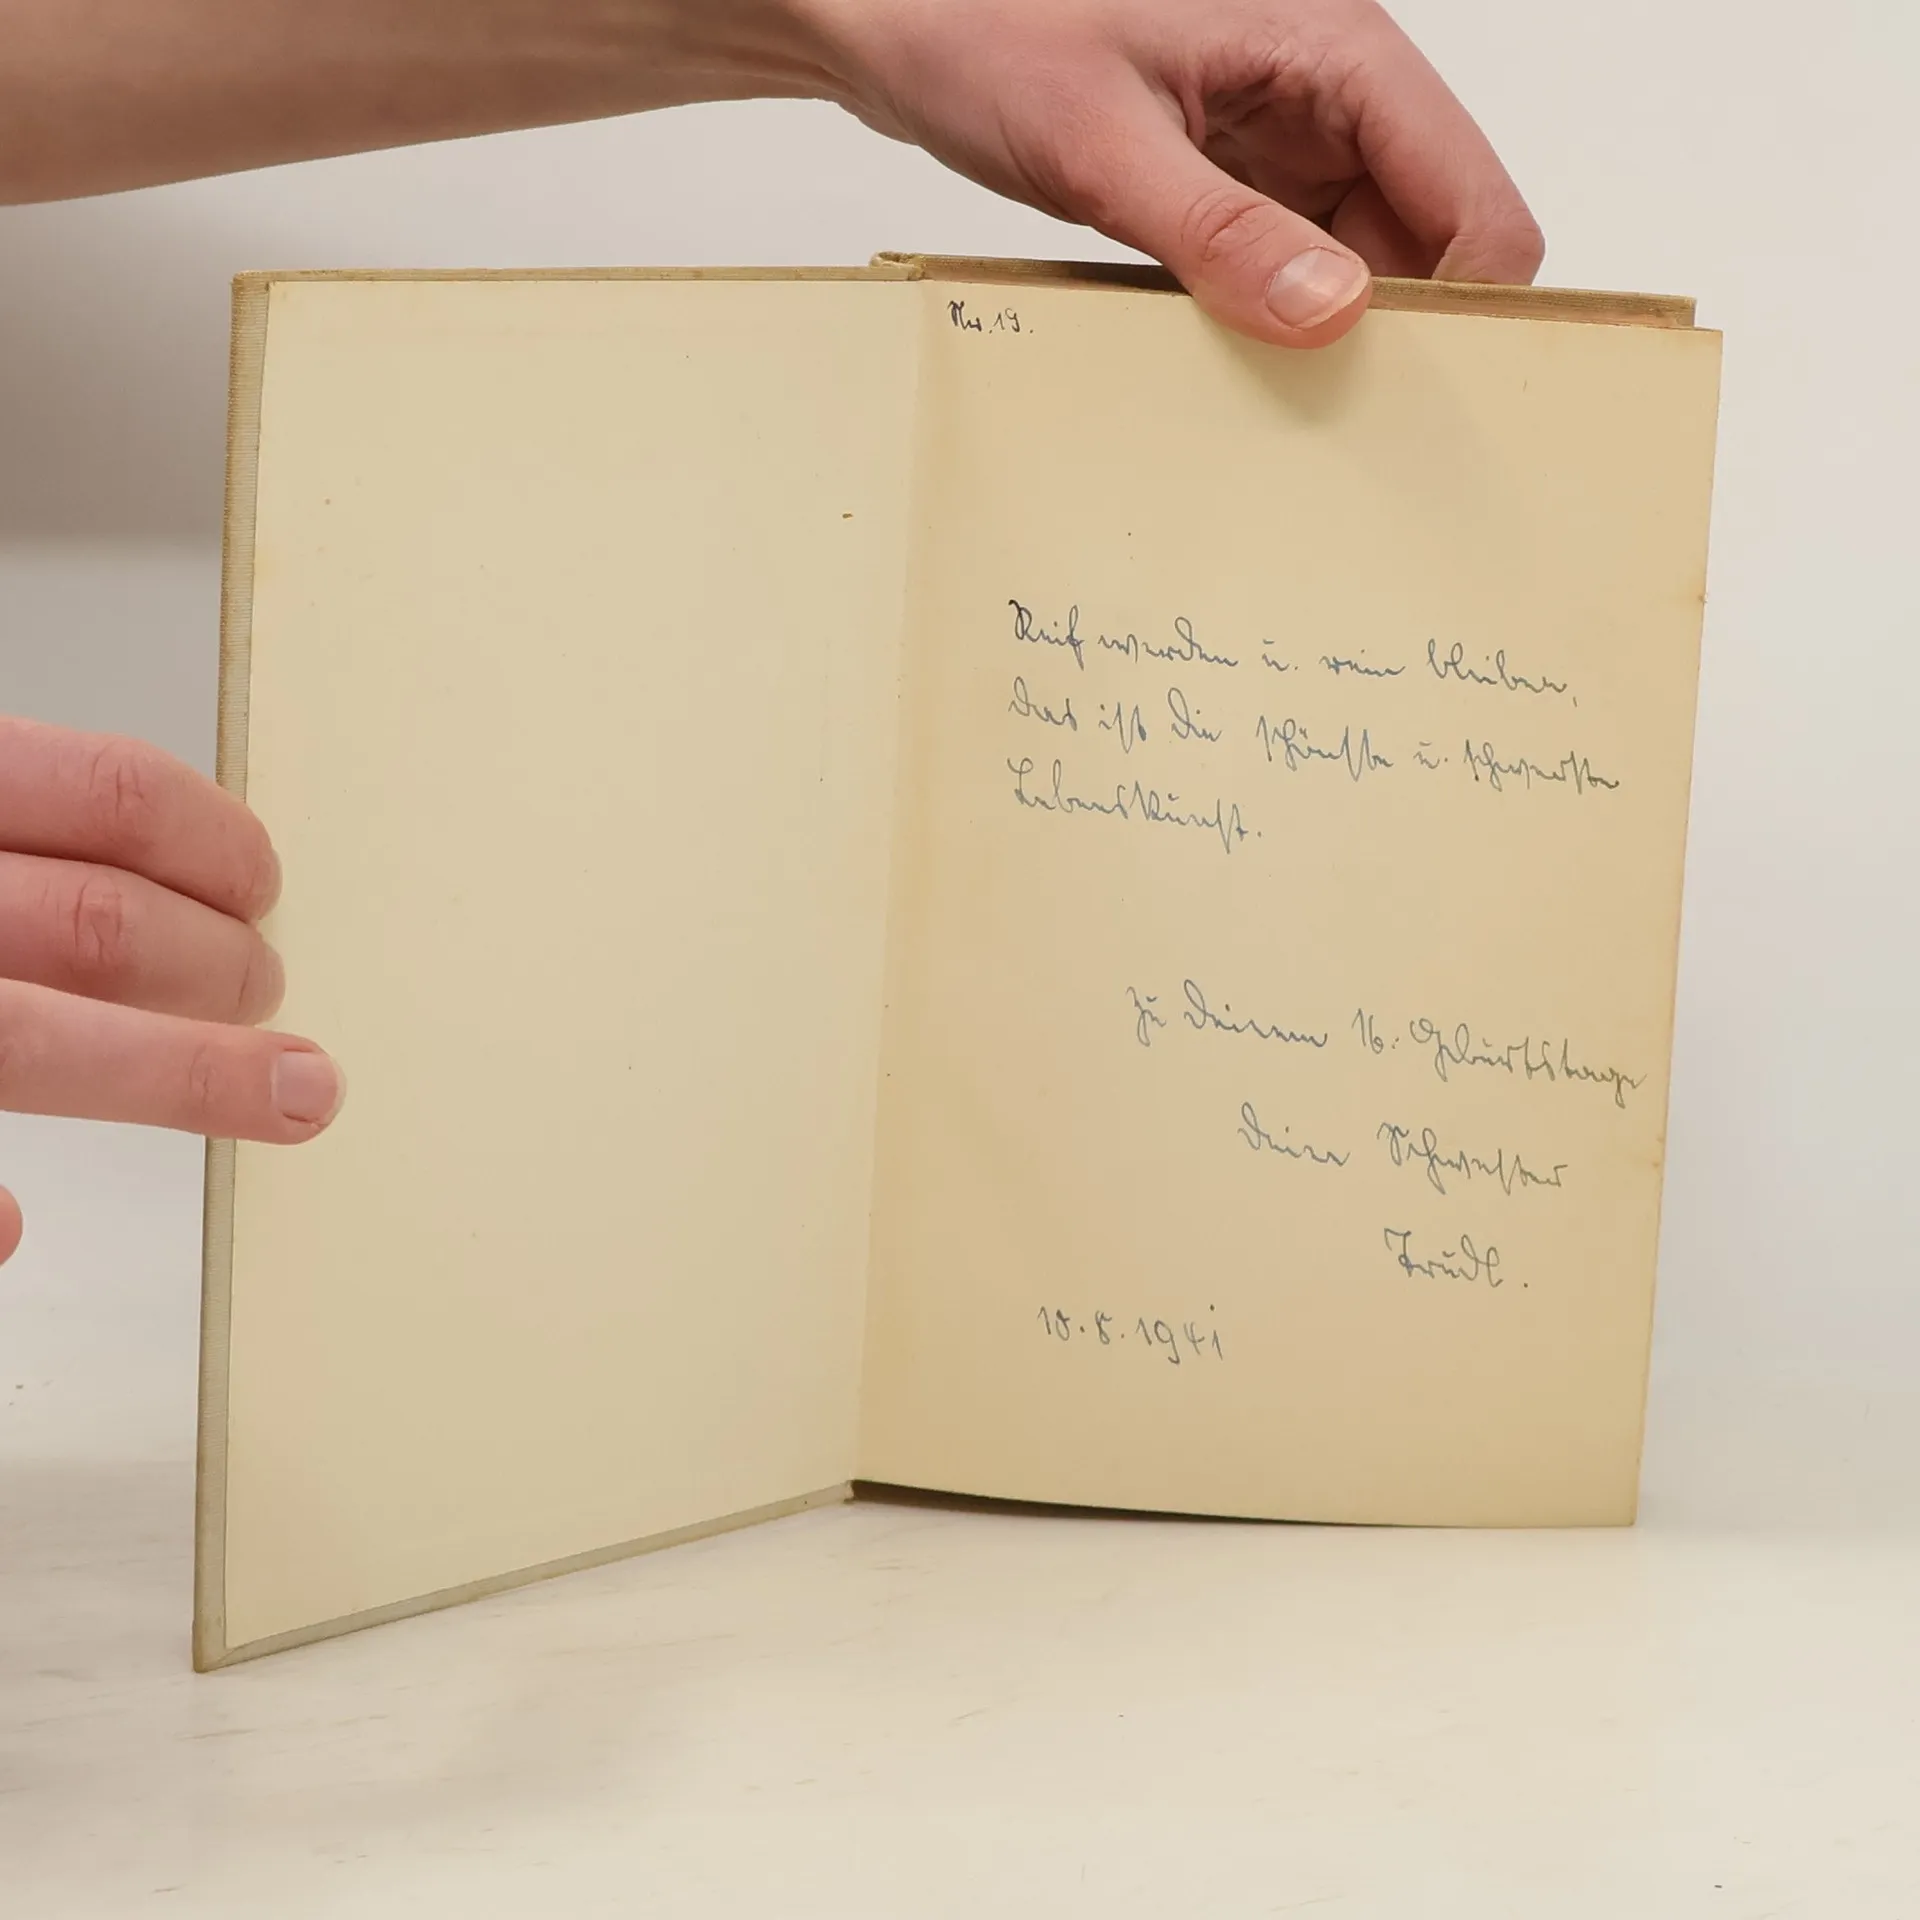 Nr. 19.
Reif werden u. rein bleiben,
das ist die schönste u. schwerste
Lebenskunst.
Zu Deinem 16. Geburtstage
Deine Schwester
Trudl.
10.8.1941